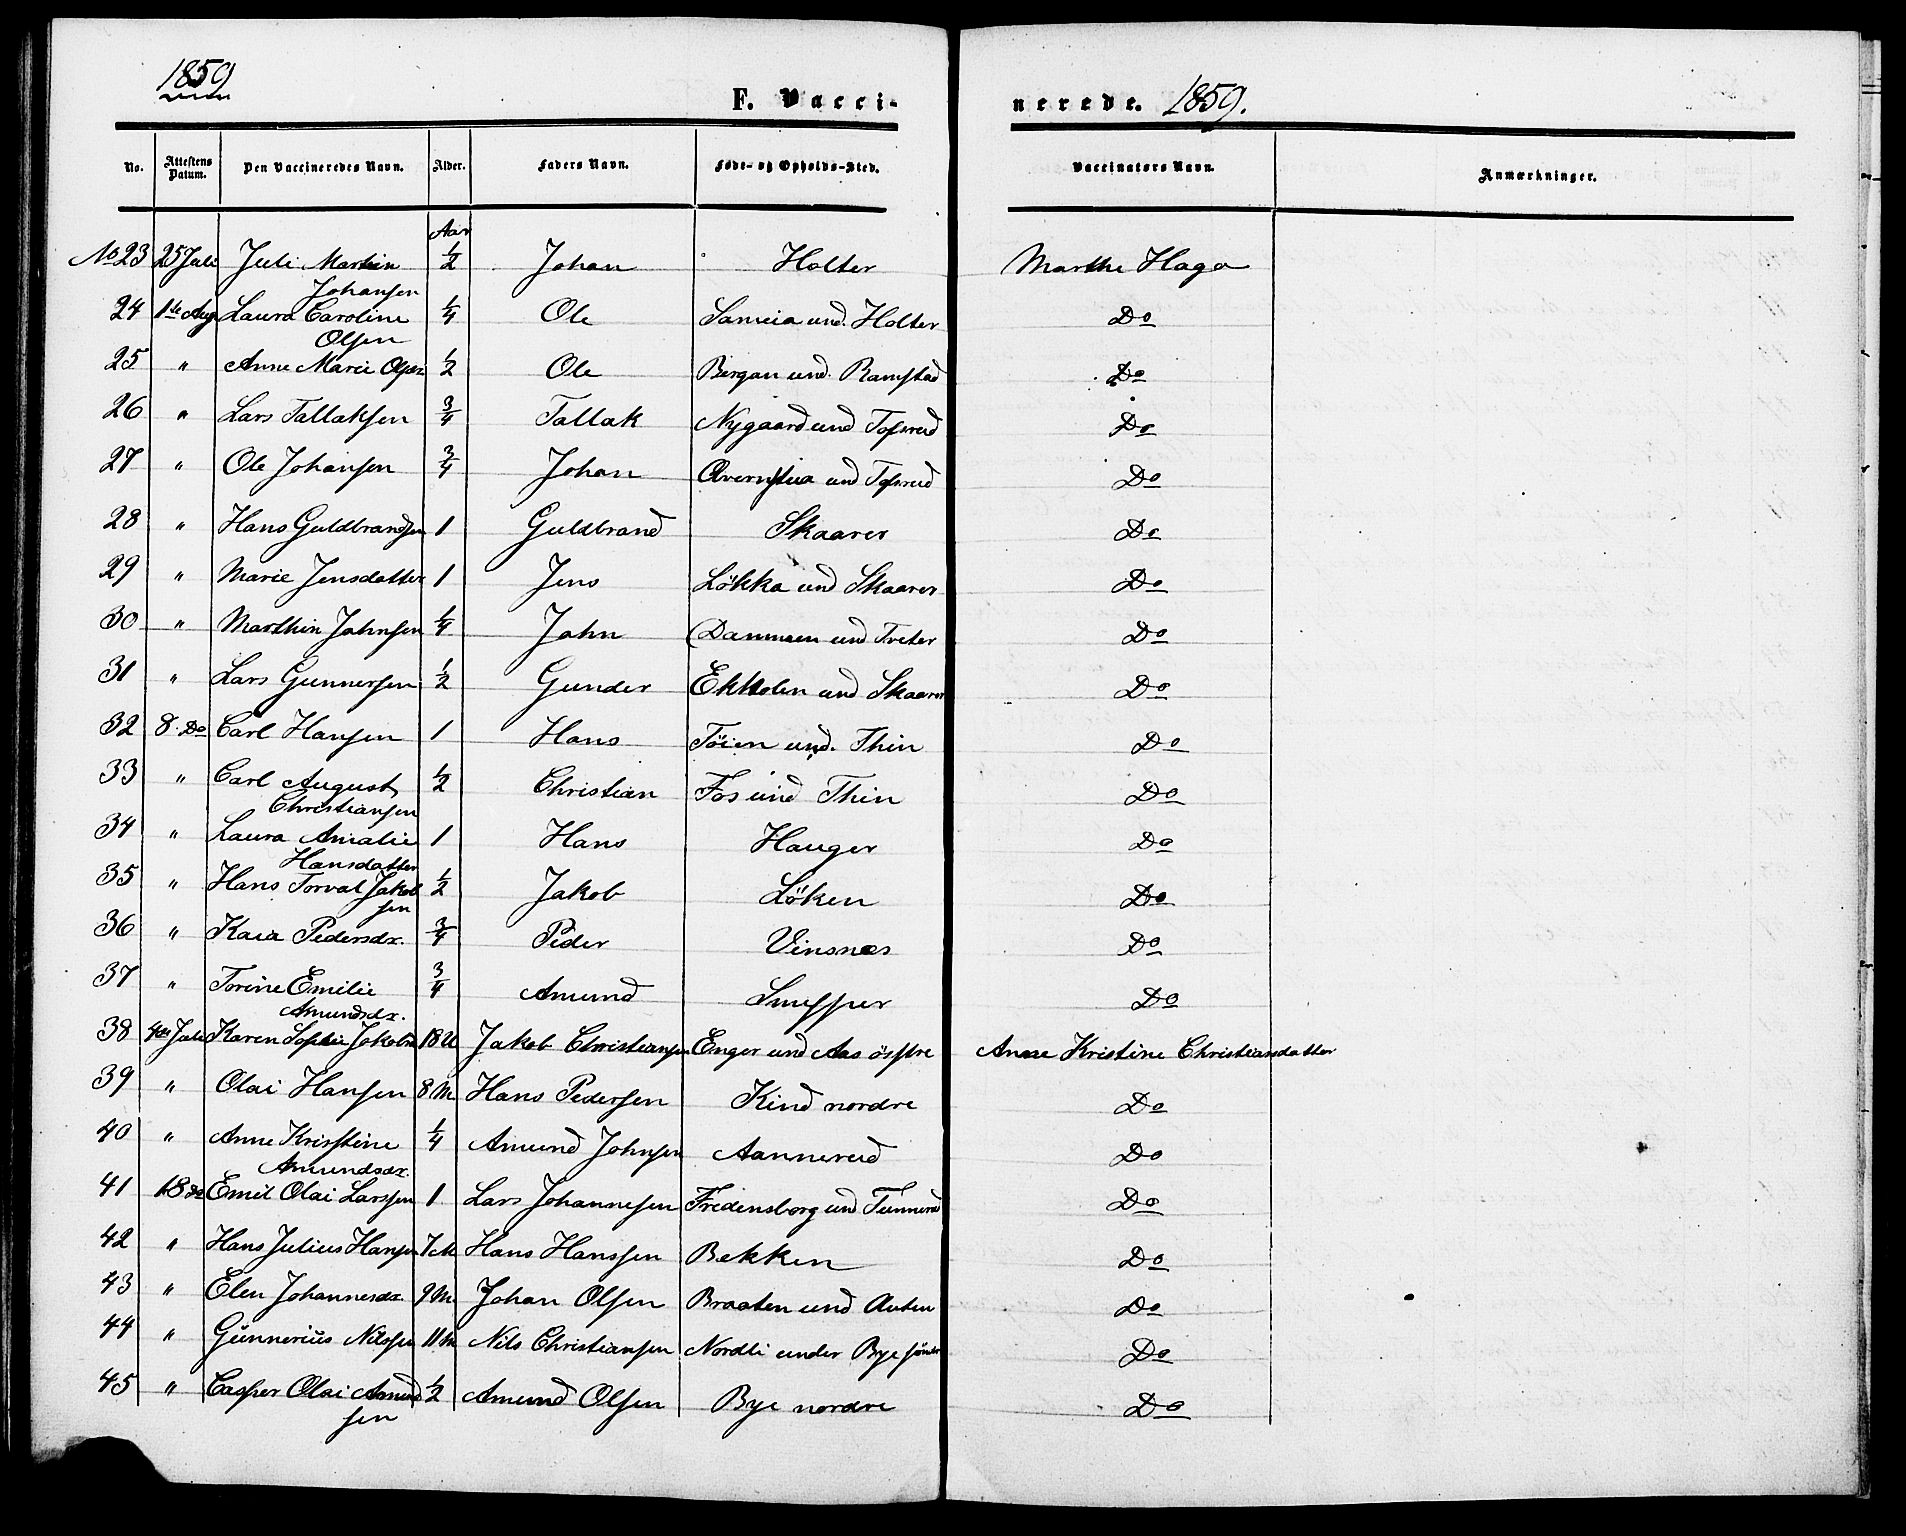 1859
F. Vacci-
nerede. 1859.
No. Attestens Datum. Den Vaccineredes Navn. Alder. Faders Navn. Føde- og Opholds-Sted. Vaccinators Navn. Anmærkninger.
Aar
No 23 25 Juli Juli Martin Johansen 1/2 Johan Holter Marthe Haga
24 1ste Aug Laura Caroline Olsen 1/4 Ole und. Holter Do
25 " Anne Marie Olsen 1/2 Ole Bergan und. Ramstad Do
26 " Lars Tallaksen 3/4 Tallak Nygaard und Tofsrud Do
27 " Ole Johansen 3/4 Johan Qvernstua und Tofsrud Do
28 " Hans Guldbrandsen 1 Guldbrand Skaarer Do
29 " Marie Jensdatter 1 Jens Lökka und Skaarer Do
30 " Marthin Johnsen 1/4 John Dammen und Treter Do
31 " Lars Gunnersen 1/2 Gunder Ekholen und Skaarer Do
32 8. Do Carl Hansen 1 Hans Töien und. Thin Do
33 " Carl August Christiansen 1/2 Christian Fos und Thin Do
34 " Laura Amalie Hansdatter 1 Hans Hauger Do
35 " Hans Torval Jakobsen 1/2 Jakob Löken Do
36 " Kaia Pedersdr. 3/4 Peder Vinsnæs Do
37 " Torine Emilie Amundsdr. 3/4 Amund Do
38 4de Juli Karen Sophie Jakobsn 18 U Jakob Christiansen Enger und Aas östre Anne Kristine Christiansdatter
39 " Olai Hansen 8 M. Hans Pedersen Kind nordre Do
40 " Anne Kristine Amundsdr. 1/4 Amund Johnsen Aannerud Do
41 18 Do Emil Olai Larssen 1 Lars Johannesen Fredensborg und Tunnerud Do
42 " Hans Julius Hansen 7 M Hans Hanssen Bekken Do
43 " Elen Johannesdr. 9 M. Johan Olsen Braaten und Auten Do
44 " Günnerius Nilssen 11 M Nils Christiansen Nordli under Bye söndr Do
45 " Casper Olai Amundsen 1/2 Amund Olsen Bye nordre Do